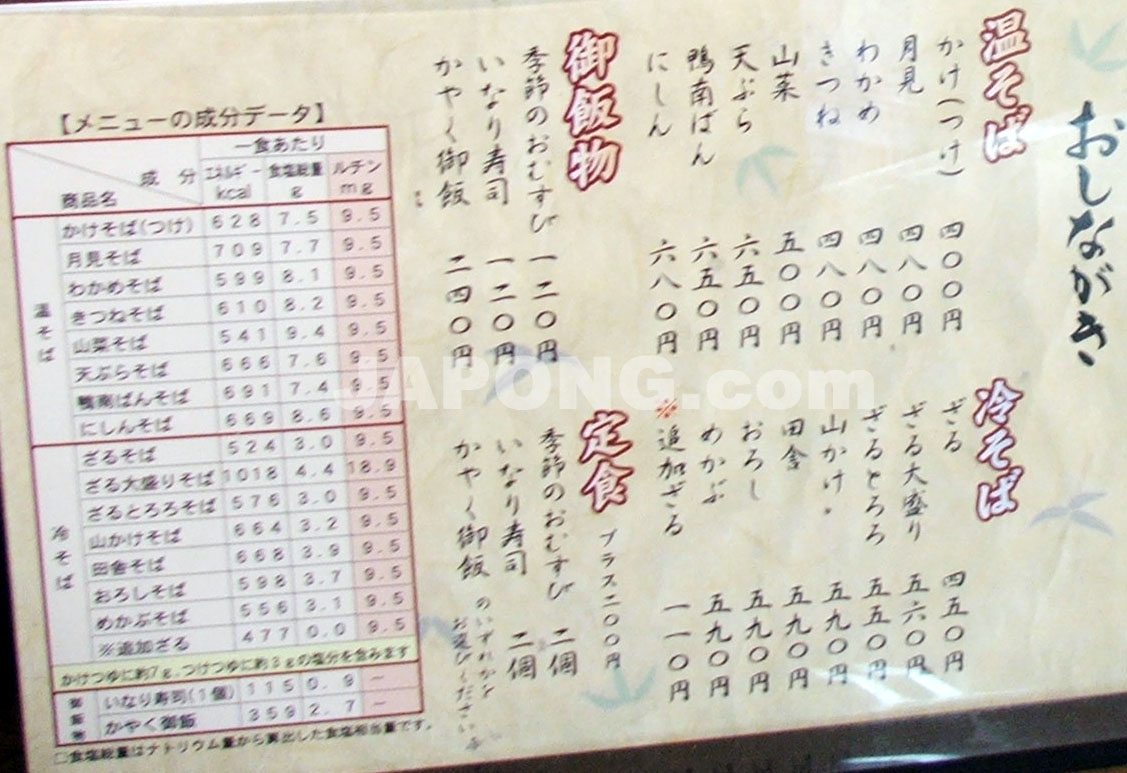 おしながき
温そば
かけ(つけ) 四〇〇円
月見 四八〇円
わかめ 四八〇円
きつね 四八〇円
山菜 五〇〇円
天ぷら 六五〇円
鴨南ばん 六五〇円
にしん 六八〇円
冷そば
ざる 四五〇円
ざる大盛り 五六〇円
ざるとろろ 五五〇円
山かけ 五九〇円
田舎 五九〇円
おろし 五九〇円
めかぶ 五九〇円
※追加ざる 一一〇円
御飯物
季節のおむすび 一二〇円
いなり寿司 一二〇円
かやく御飯 二四〇円
定食 プラス二〇〇円
季節のおむすび 二個
いなり寿司 二個
かやく御飯
のいずれかを
お選びください
【メニューの成分データ】
成分 一食あたり
商品名 エネルギーkcal 食塩総量g ルチンmg
温そば
かけそば(つけ) 628 7.5 9.5
月見そば 709 7.7 9.5
わかめそば 599 8.1 9.5
きつねそば 610 8.2 9.5
山菜そば 541 9.4 9.5
天ぷらそば 666 7.6 9.5
鴨南ばんそば 691 7.4 9.5
にしんそば 669 8.6 9.5
冷そば
ざるそば 524 3.0 9.5
ざる大盛りそば 1018 4.4 18.9
ざるとろろそば 576 3.0 9.5
山かけそば 664 3.2 9.5
田舎そば 668 3.9 9.5
おろしそば 598 3.7 9.5
めかぶそば 556 3.1 9.5
※追加ざる 477 0.0 9.5
かけつゆに約7g、つけつゆに約3gの塩分を含みます
御飯物
いなり寿司(1個) 115 0.9 －
かやく御飯 359 2.7 －
□食塩総量はナトリウム量から算出した食塩相当量です。
JAPONG.com